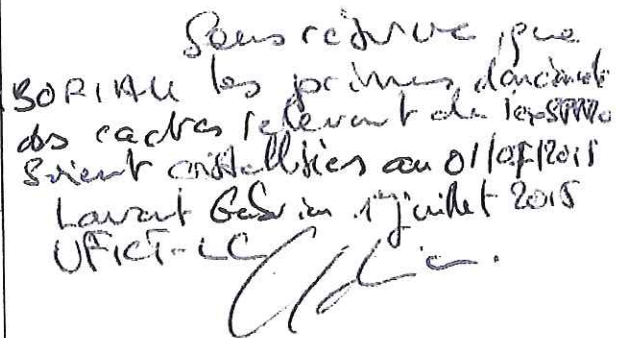 Sous réserve que
les primes d'ancienneté
des cadres relevant de
Soient cristallisées au 01/07/2015
Laurent 1er juillet 2015
UFICT-LC